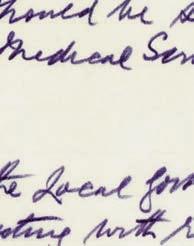 should be
Medical Ser
the Local Gov
with